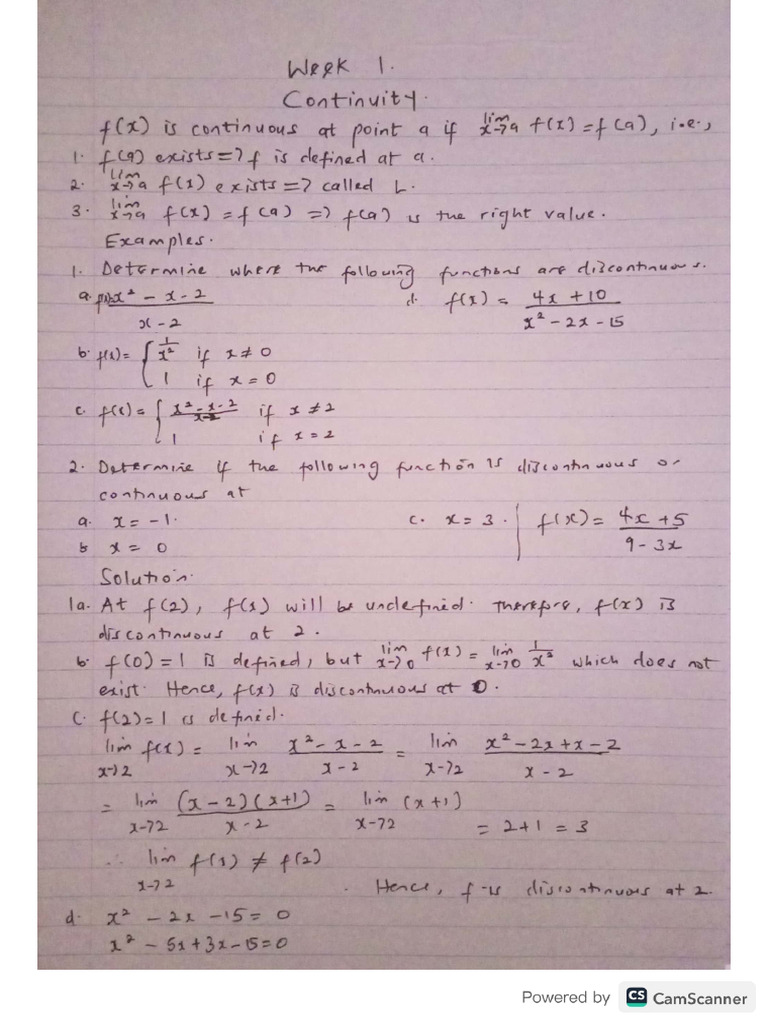 Week 1.
Continuity.
f(x) is continuous at point a if lim x→a f(x) = f(a), i.e.,
1. f(a) exists => f is defined at a.
2. lim x→a f(x) exists => called L.
3. lim x→a f(x) = f(a) => f(a) is the right value.
Examples.
1. Determine where the following functions are discontinuous.
a. x² - x - 2 / x - 2
d. f(x) = 4x + 10 / x² - 2x - 15
b. f(x) = { 1/x² if x ≠ 0
1 if x = 0
c. f(x) = { x² - x - 2 / x - 2 if x ≠ 2
1 if x = 2
2. Determine if the following function is discontinuous or
continuous at
a. x = -1.
c. x = 3. | f(x) = 4x + 5 / 9 - 3x
b x = 0
Solution.
1a. At f(2), f(x) will be undefined. Therefore, f(x) is
discontinuous at 2.
b. f(0) = 1 is defined, but lim x→0 f(x) = lim x→0 1/x² which does not
exist. Hence, f(x) is discontinuous at 0.
c. f(2) = 1 is defined.
lim x→2 f(x) = lim x→2 x² - x - 2 / x - 2 = lim x→2 x² - 2x + x - 2 / x - 2
= lim x→2 (x - 2)(x + 1) / x - 2 = lim x→2 (x + 1) = 2 + 1 = 3
∴ lim x→2 f(x) ≠ f(2)
. Hence, f is discontinuous at 2.
d. x² - 2x - 15 = 0
x² - 5x + 3x - 15 = 0
Powered by CS CamScanner